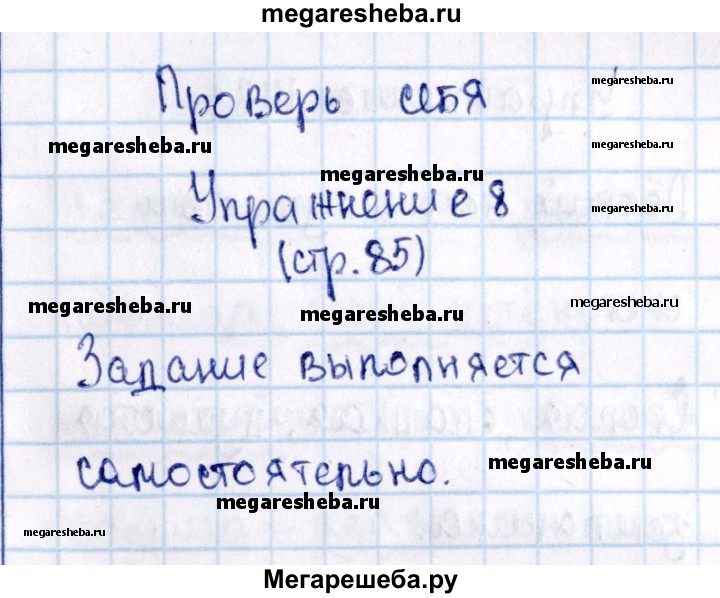 megaresheba.ru
Проверь себя
megaresheba.ru
megaresheba.ru
megaresheba.ru
megaresheba.ru
Упражнение 8
megaresheba.ru
(стр. 85)
megaresheba.ru
megaresheba.ru
megaresheba.ru
Задание выполняется
самостоятельно.
megaresheba.ru
megaresheba.ru
megaresheba.ru
Мегарешеба.ру